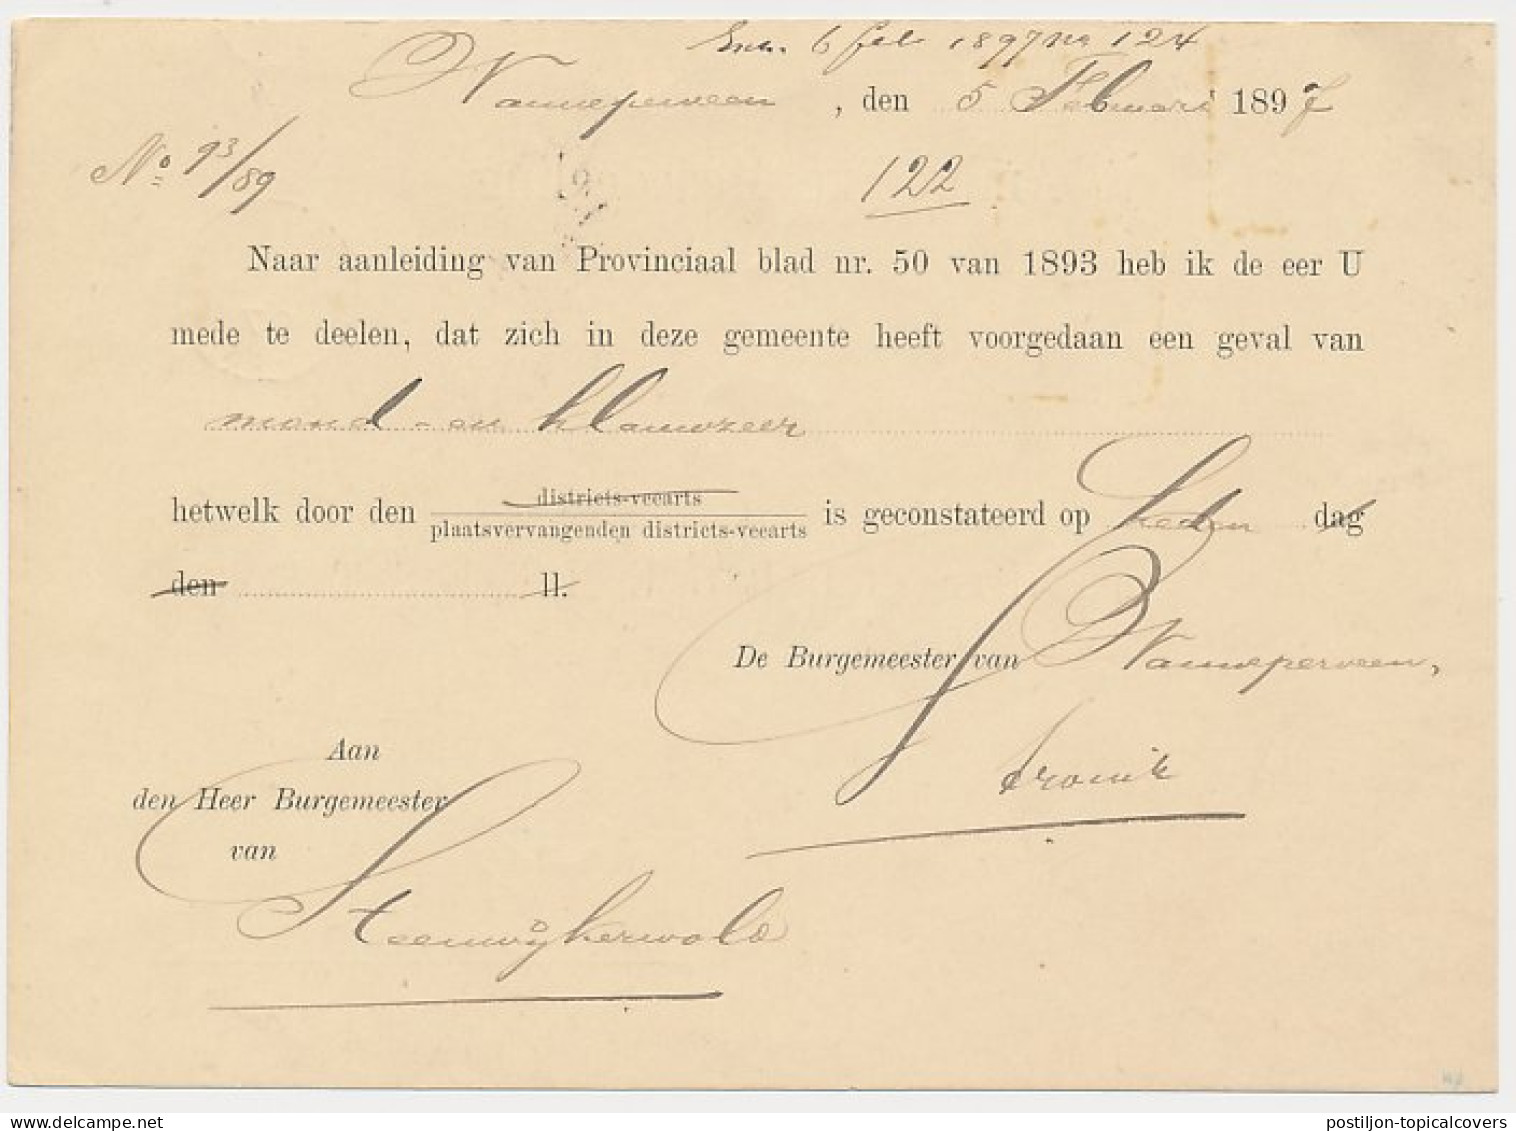 Ink. 6 feb 1897 no 124
Wanneperveen, den 5 Februari 1897
No 93/89
122
Naar aanleiding van Provinciaal blad nr. 50 van 1893 heb ik de eer U
mede te deelen, dat zich in deze gemeente heeft voorgedaan een geval van
mond- en klauwzeer
districts-veearts
hetwelk door den plaatsvervangenden districts-veearts is geconstateerd op heden dag
den ll.
De Burgemeester van Wanneperveen,
Aan
den Heer Burgemeester
van
Steenwijkerwold
postiljon-topicalcovers